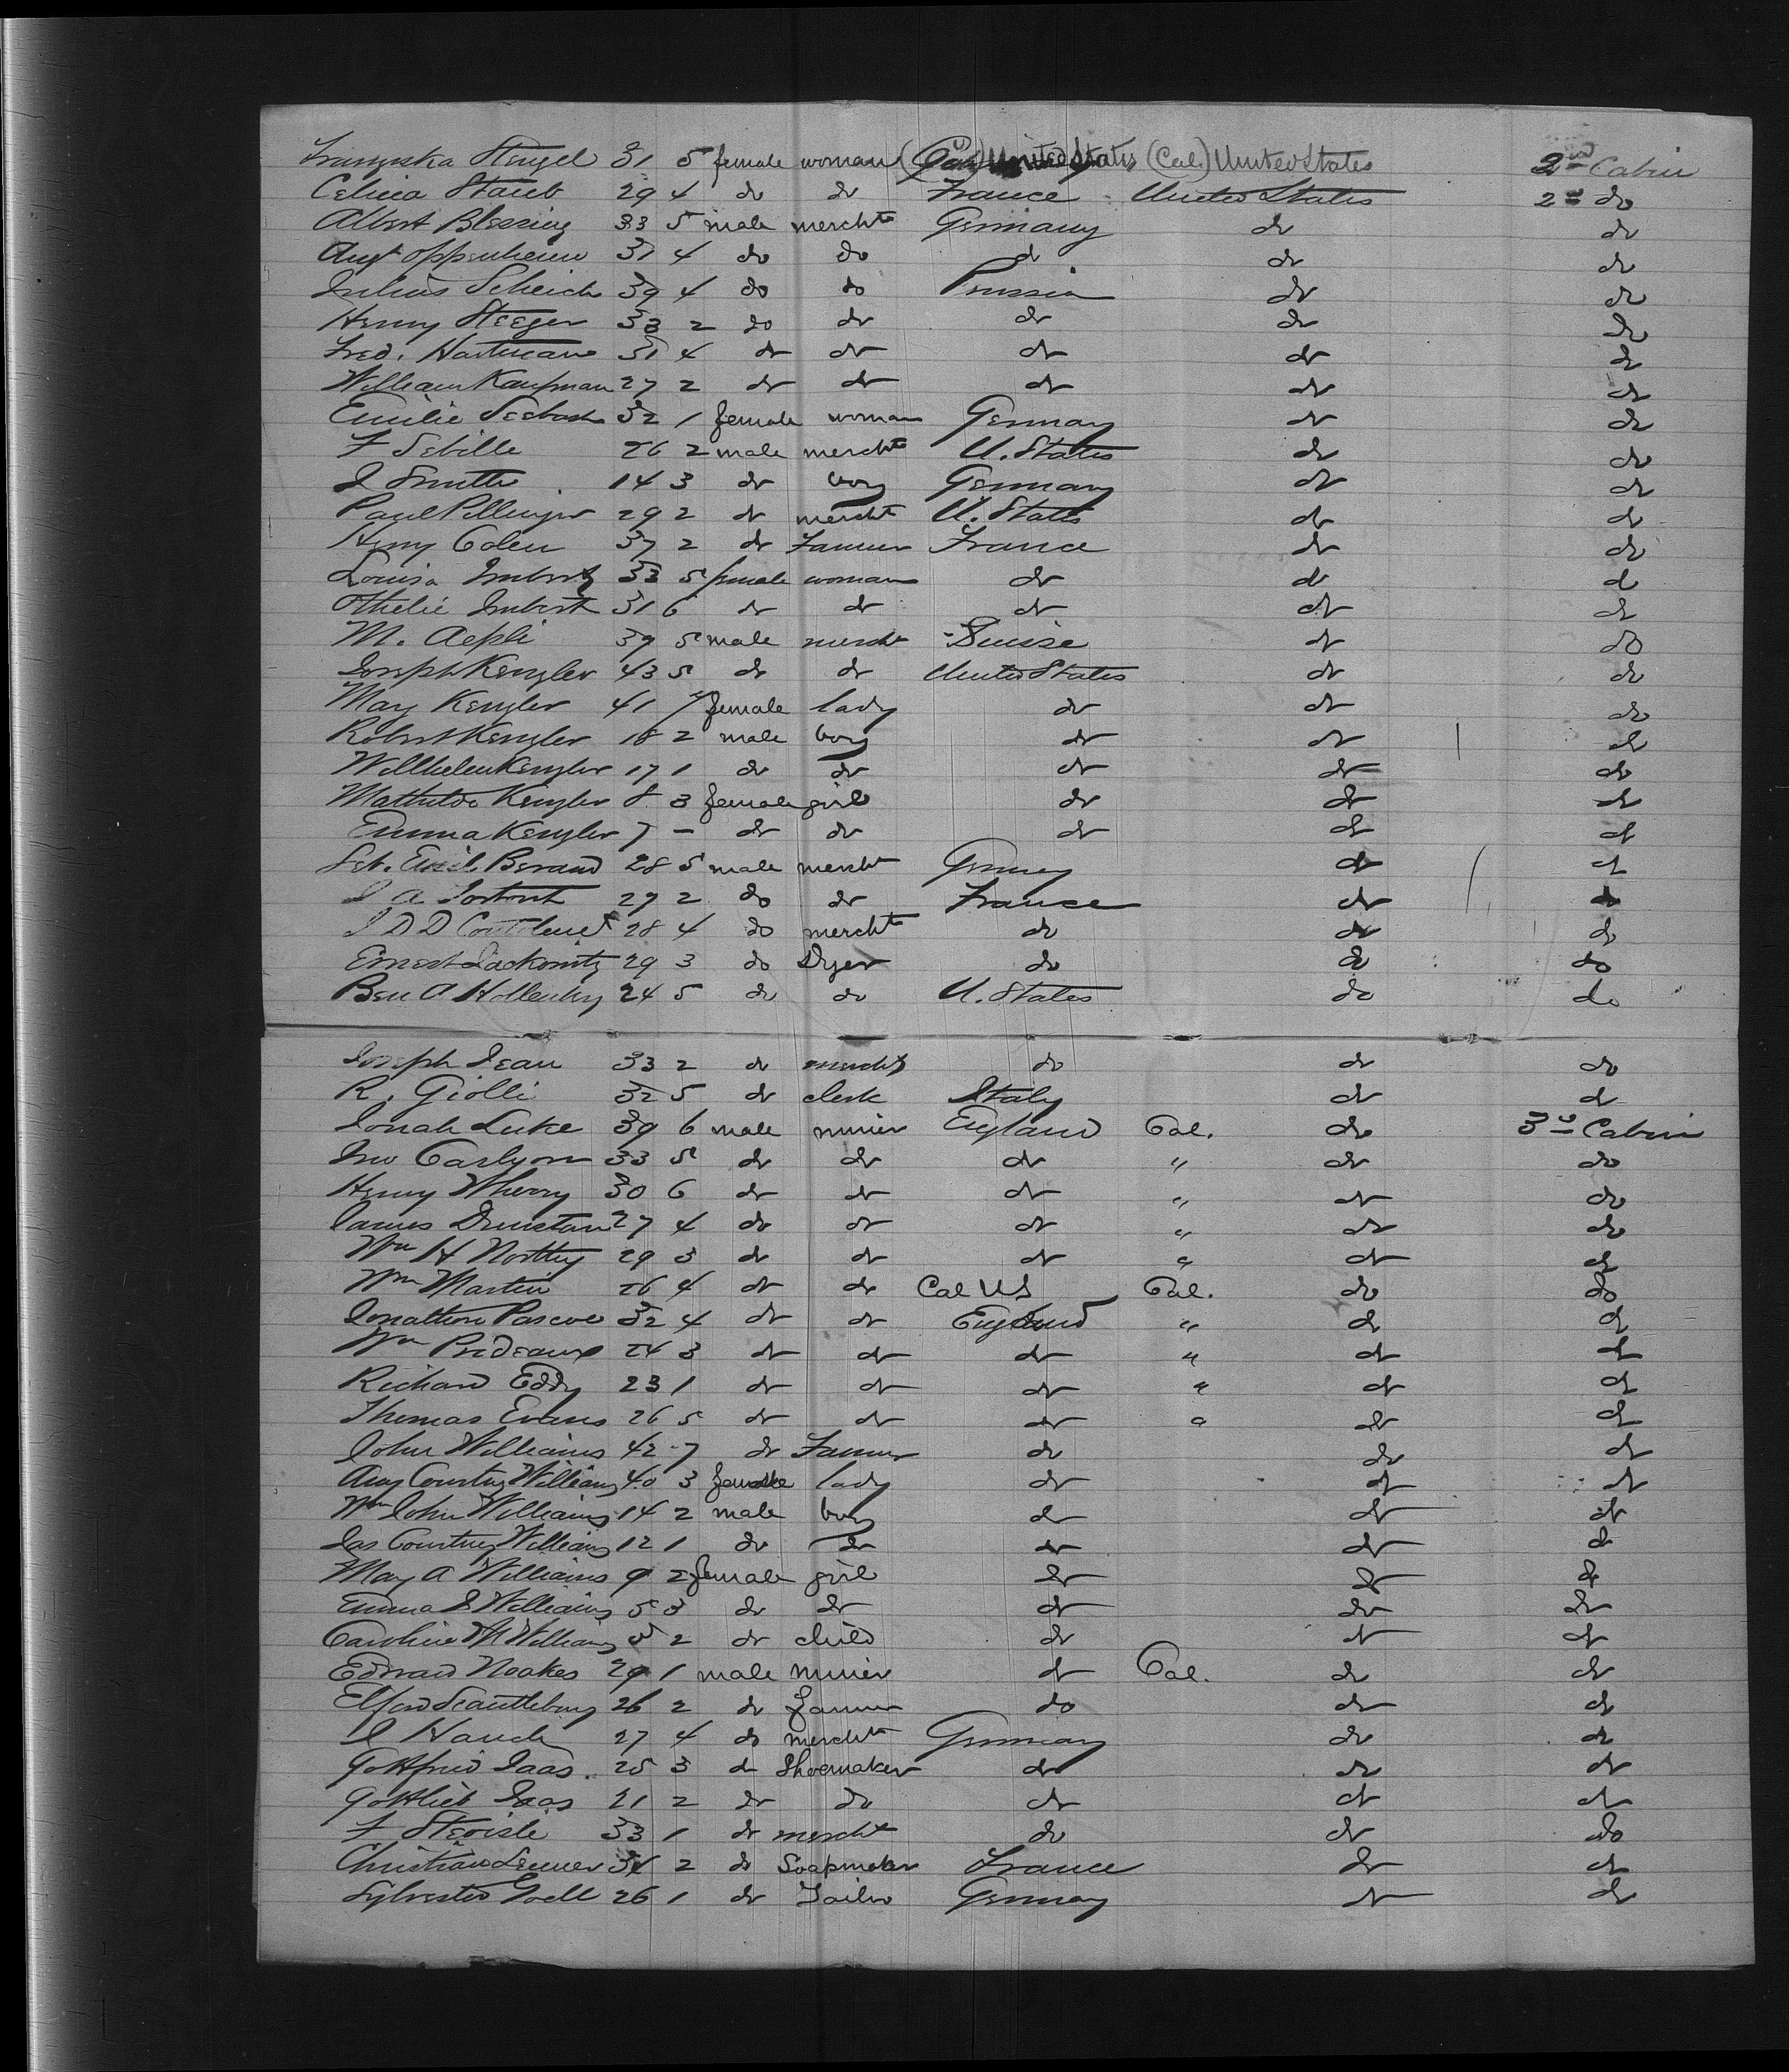 Franziska Stengel 31 5 female woman (Cal) United States (Cal.) United States 2nd Cabin
Celina Staub 29 4 do do France United States 2nd do
Albert Blessing 33 5 male merchts Germany do do
Aug Oppenheim 31 4 do do do do do
Julius Scheich 39 4 do do Prussia do do
Henry Steeger 33 2 do do do do do
Fred. Hartman 51 4 do do do do do
William Kaufman 27 2 do do do do do
Emilie Seebach 32 1 female woman Germany do do
F Sebille 26 2 male merchts U. States do do
J Smith 14 3 do boy Germany do do
Paul Pellinger 29 2 do mercht U. States do do
Henry Colen 37 2 do Farmer France do do
Louisa Imbert 33 5 female woman do do do
Othelie Imbert 31 6 do do do do do
M. Aepli 39 5 male mercht Suisse do do
Joseph Kenzler 43 5 do do United States do do
May Kenzler 41 7 female lady do do do
Robert Kenzler 18 2 male boy do do do
Willhelm Kenzler 17 1 do do do do do
Mathilda Kenzler 8 3 female girl do do do
Emma Kenzler 7 – do do do do do
Emil Berand 28 5 male mercht Germy do do
J A 27 2 do do France do do
J D D 28 4 do mercht do do do
Ernest Lackowitz 29 3 do Dyer do do do
Ben A Hollenby 24 5 do do U. States do do
Joseph Jean 33 2 do mercht do do do
R. Giolli 32 5 do clerk Italy do do
Jonah Luke 39 6 male miner England Cal. do 3d Cabin
Jno Carlyon 33 5 do do do " do do
Henry Wherry 30 6 do do do " do do
James Dunstan 27 4 do do do " do do
Wm H Northey 29 3 do do do " do do
Wm Martin 26 4 do do Cal US Cal. do do
Jonathon Pascoe 32 4 do do England " do do
Wm Prideaux 24 3 do do do " do do
Richard Eddy 23 1 do do do " do do
Thomas Evans 26 5 do do do " do do
John Williams 42 7 do Farmer do do do
Amy Courtney Williams 40 3 female lady do do do
Wm John Williams 14 2 male boy do do do
Jas Courtney Williams 12 1 do do do do do
May A Williams 9 2 female girl do do do
Emma J Williams 5 3 do do do do do
Caroline M Williams 3 2 do child do do do
Edward Noakes 29 1 male miner do Cal. do do
Elford Scantlebury 26 2 do farmer do do do
J Hauch 27 4 do merchts Germany do do
Gottfried Jaas 25 3 do Shoemaker do do do
Gottlieb Jaas 21 2 do do do do do
F Steoisle 33 1 do mercht do do do
Christian Lenner 34 2 do Soapmaker France do do
Sylvester Goell 26 1 do Tailor Germany do do